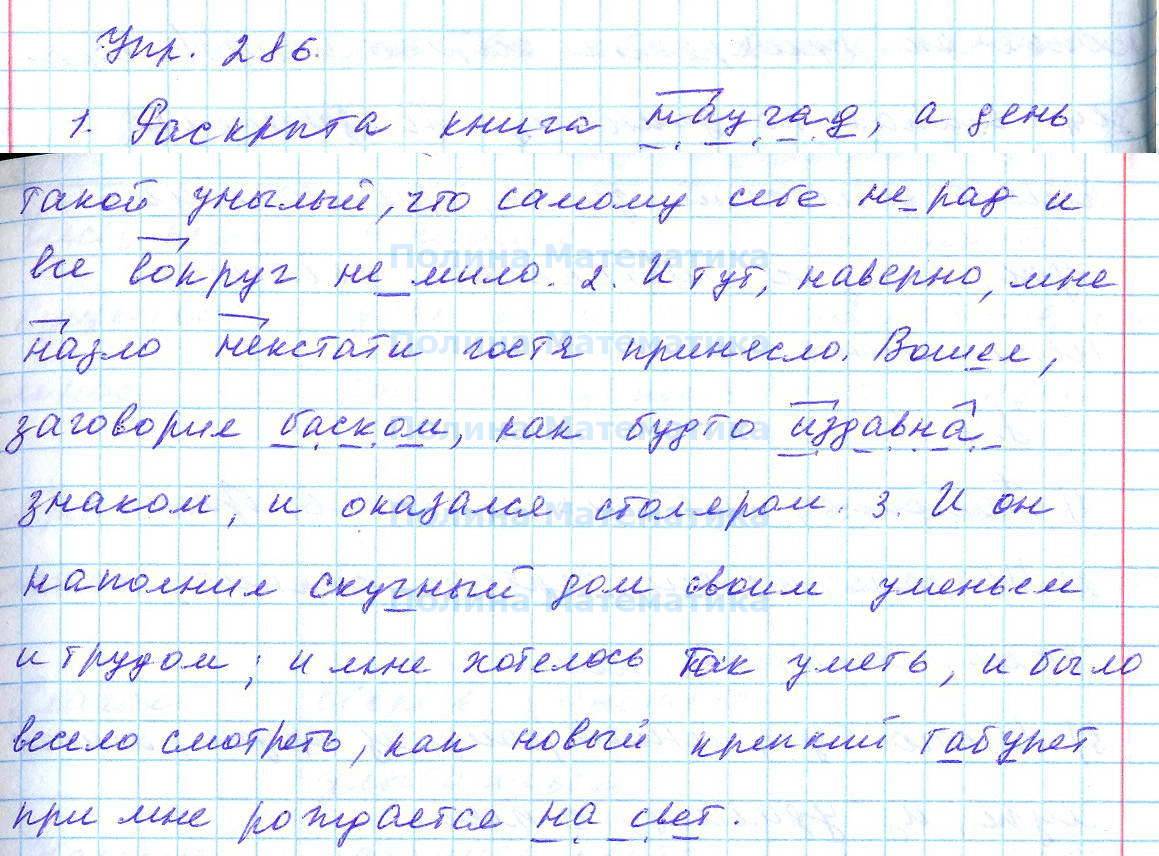 Упр. 286.
1. Раскрыта книга наугад, а день
такой унылый, что самому себе не рад и
все вокруг не мило. 2. И тут, наверно, мне
назло некстати гостя принесло. Вошел,
заговорил баском, как будто издавна
знаком, и оказался столяром. 3. И он
наполнил скучный дом своим уменьем
и трудом; и мне хотелось так уметь, и было
весело смотреть, как новый крепкий табурет
при мне рождается на свет.
Полина Математика
Полина Математика
Полина Математика
Полина Математика
Полина Математика